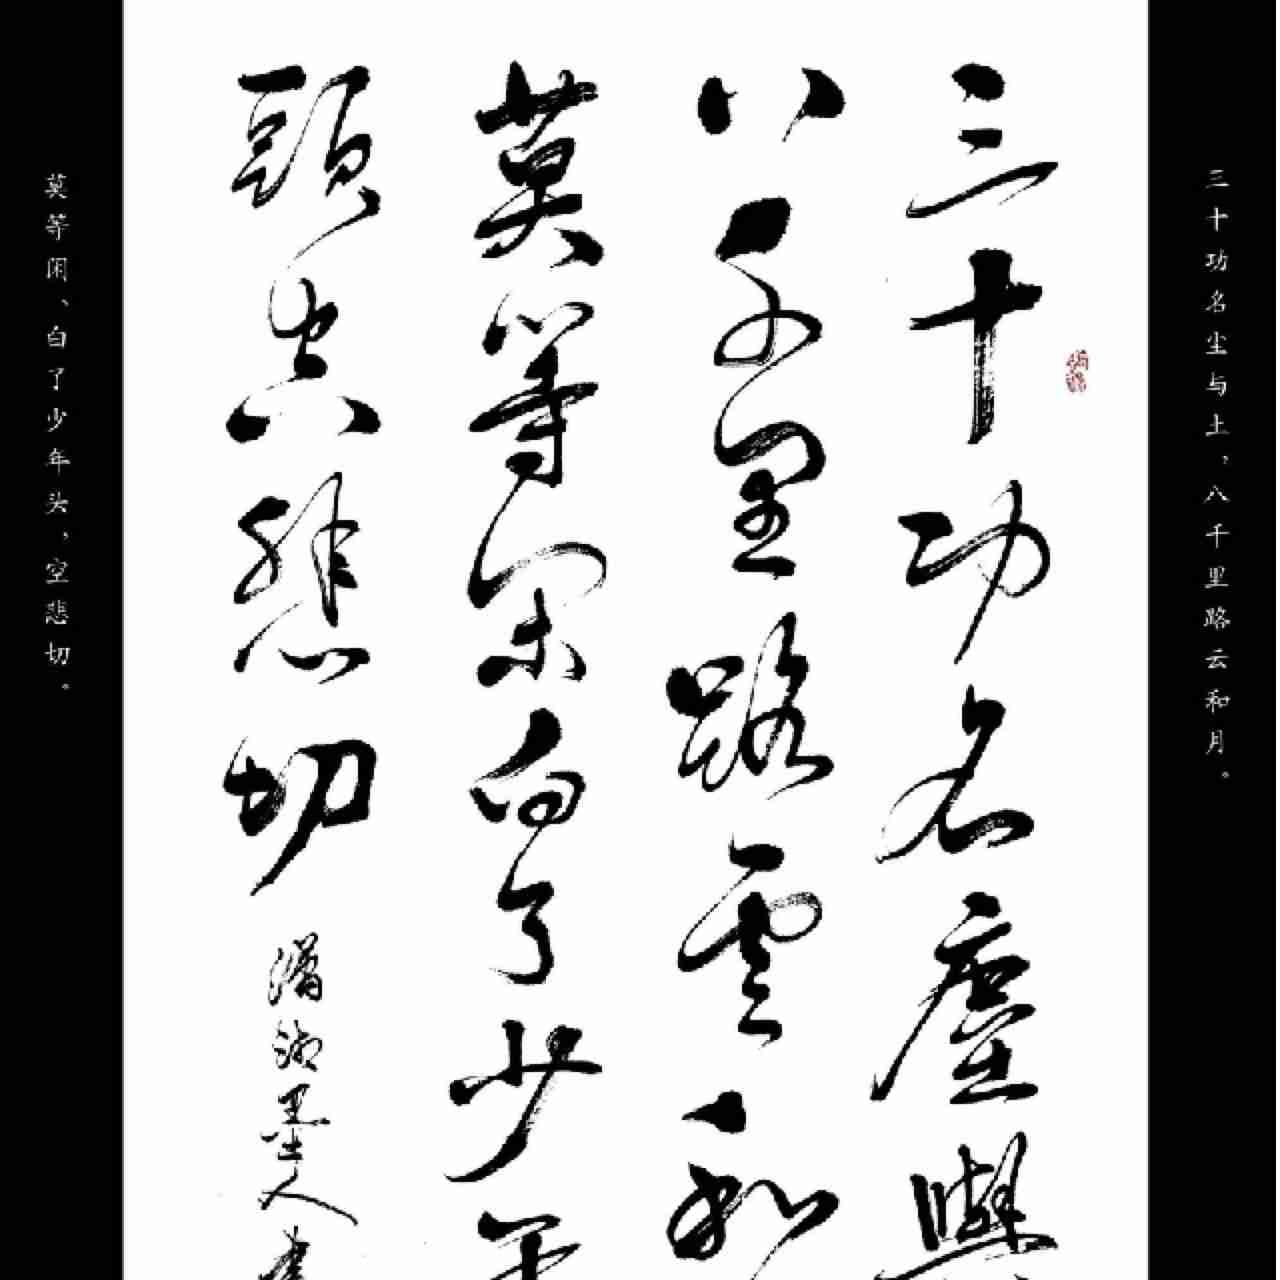 三十功名尘与土，八千里路云和月。
三十功名塵與
八千里路雲和
莫等閑白了少年
頭空悲切
瀟湘墨人書
莫等闲、白了少年头，空悲切。